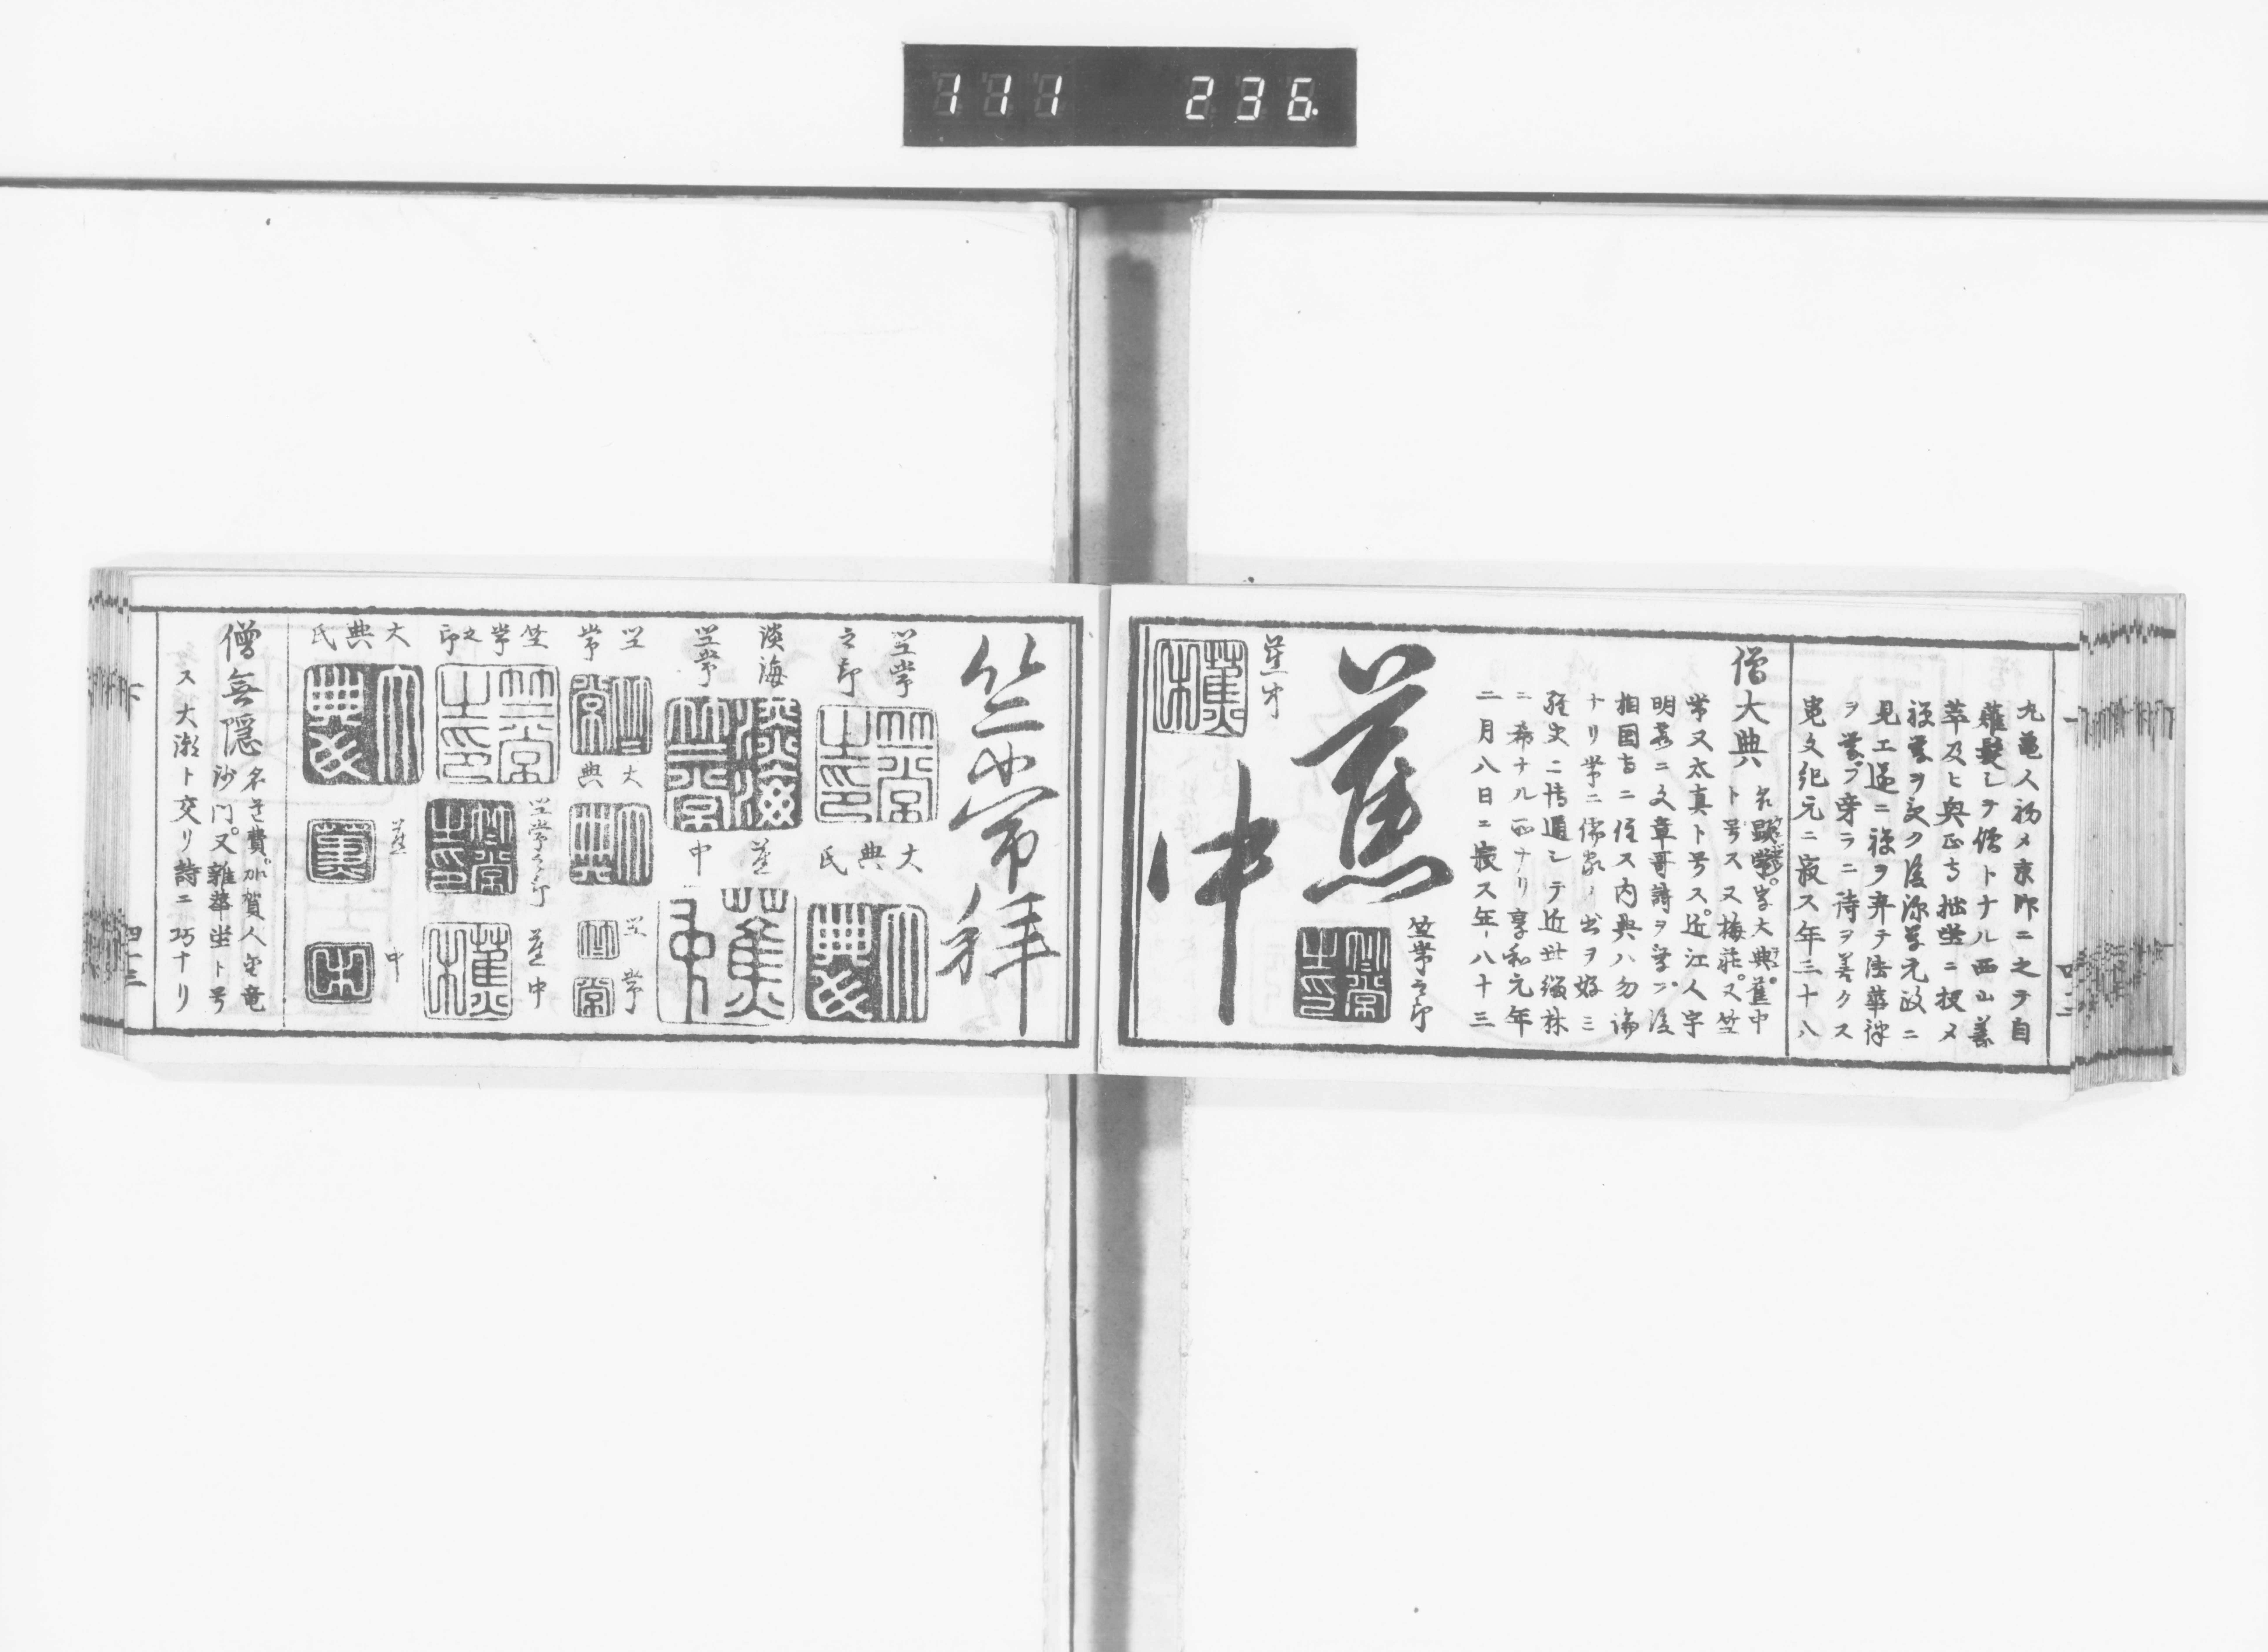 111 236.
丸亀人初メ京師ニ之テ自
薙髪シテ僧トナル西山善
萃及ヒ與正寺拙堂ニ投メ
禅学ヲ受ク後深草元政ニ
見エ遂ニ禅ヲ弃テ法華律
ヲ業フ穿ラニ詩ヲ善クス
寛文紀元ニ寂ス年三十八
僧大典
名顕常。字大典。蕉中
ト号ス又梅荘。又竺
常又太真ト号ス。近江人宇
明霞ニ文章哥詩ヲ学ブ。後
相国寺ニ住ス内典ハ勿論
ナリ常ニ儒家ノ出ヲ好ミ
経史ニ博通シテ近世緇林
ニ希ナル所ナリ享和元年
二月八日ニ寂ス年八十三
蕉
竺常之印
中
蕉中
竺常拝
竺常
之印
大典氏
淡海
竺常
蕉中
竺常
大典
竺常
竺常之印
竺常之印
蕉中
大典氏
蕉中
僧無隠
名道費。加賀人空竜
沙門。又雜華堂ト号
ス大潮ト交リ詩ニ巧ナリ
四十三